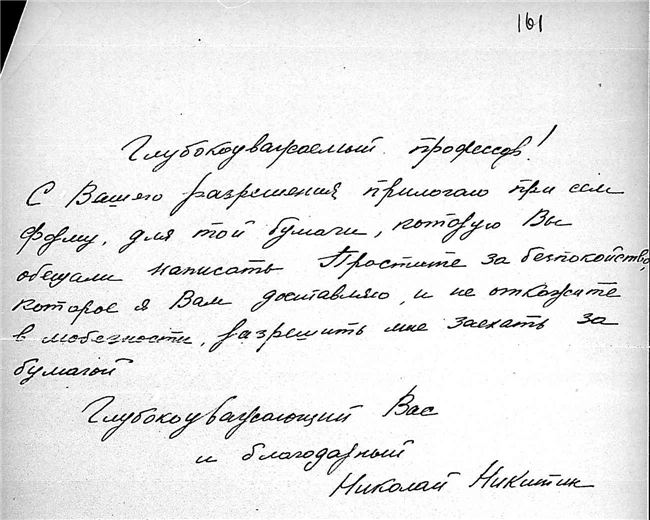 161
Глубокоуважаемый профессор!
С Вашего разрешения прилогаю при сем
форму, для той бумаги, которую Вы
обещали написать Простите за безпокойство,
которое я Вам доставляю, и не откажите
в любезности, разрешить мне заехать за
бумагой
Глубокоуважающий Вас
и благодарный
Николай Никитин